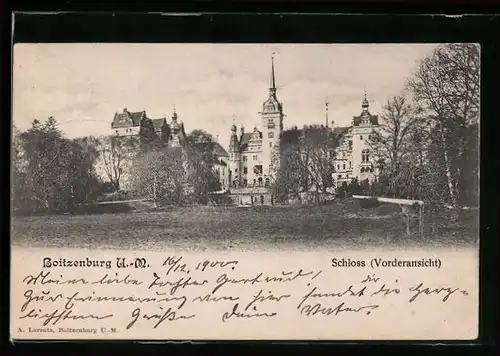 Boitzenburg U.-M. 16/12 1900. Schloss (Vorderansicht)
Meine liebe Tochter Gertrud! Dir
zur Erinnerung von hier sendet die herz-
lichsten Grüße Dein Vater.
A. Lorentz, Boitzenburg U.-M.